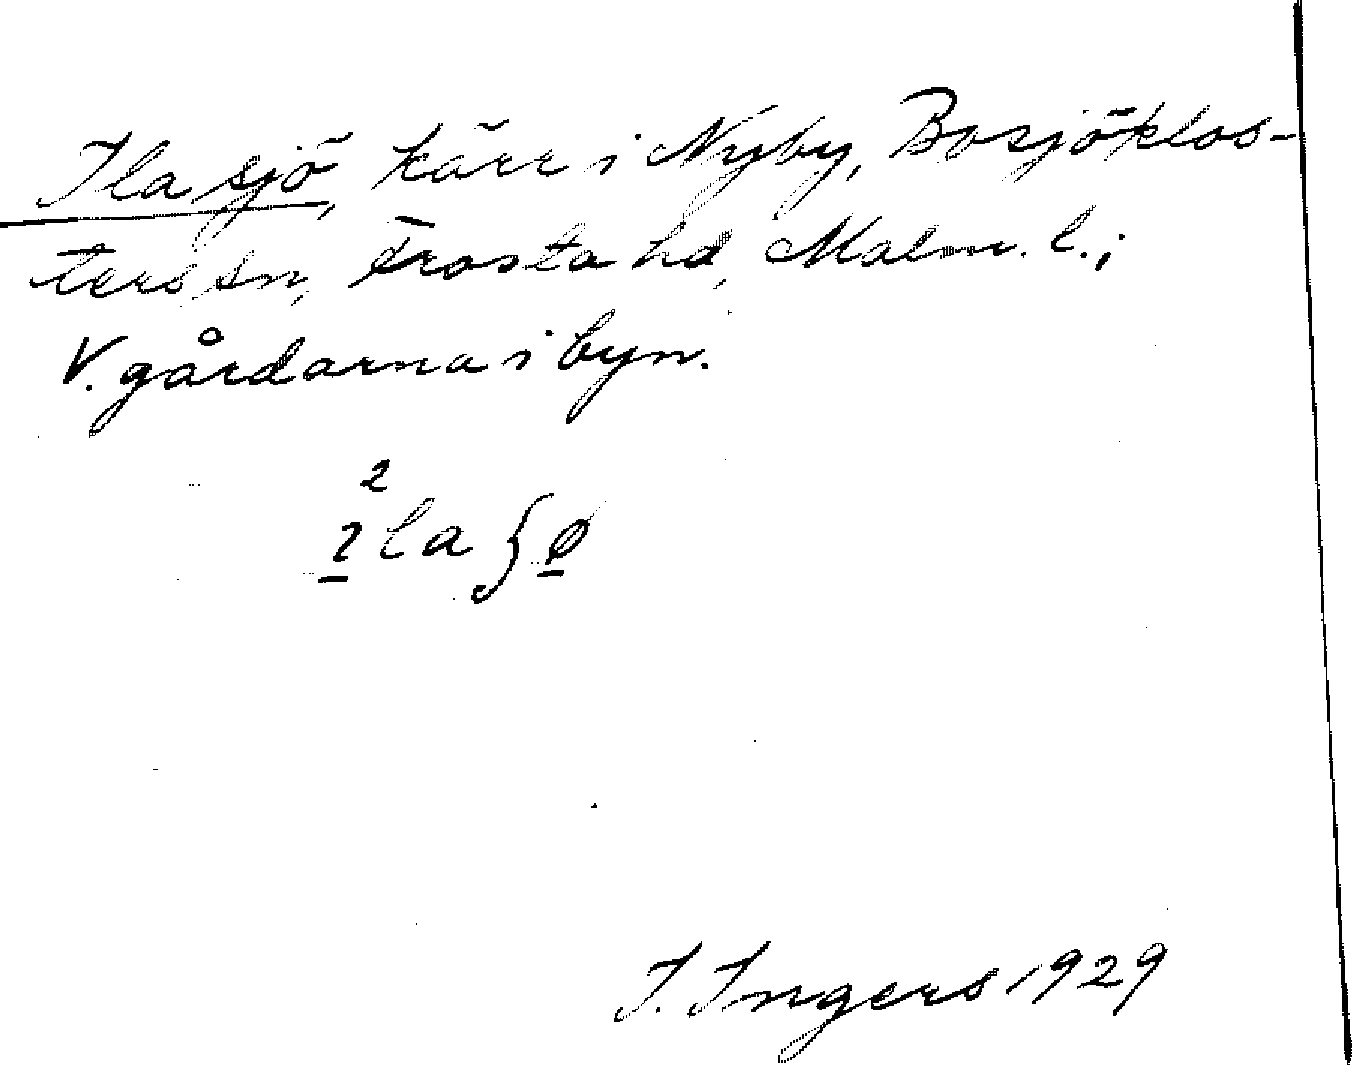 Ilasjö, kärr i Nyby, Bosjöklos-
ters sn, Frosta hd, Malm. l.;
V. gårdarna i byn.
2
ɪla ʃø
I. Ingers 1929